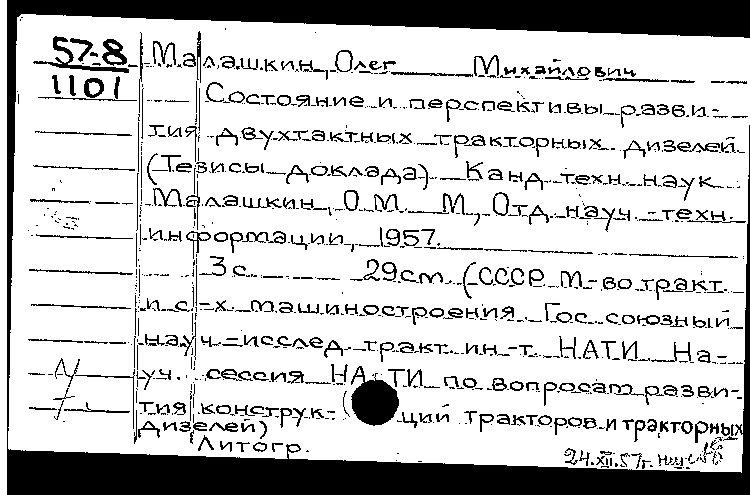 57-8
1101
Малашкин, Олег Михайлович
Состояние и перспективы разви-
тия двухтактных тракторных дизелей
(Тезисы доклада) Канд. техн. наук
Малашкин, О.М. М., Отд. науч.-техн.
информации, 1957.
3 с. 29 см. (СССР. М-во тракт.
и с.-х. машиностроения. Гос. союзный
науч.-исслед. тракт. ин-т НАТИ. На-
уч. сессия НАТИ по вопросам разви-
тия конструкций тракторов и тракторных
дизелей)
Литогр.
24.XII.57г.